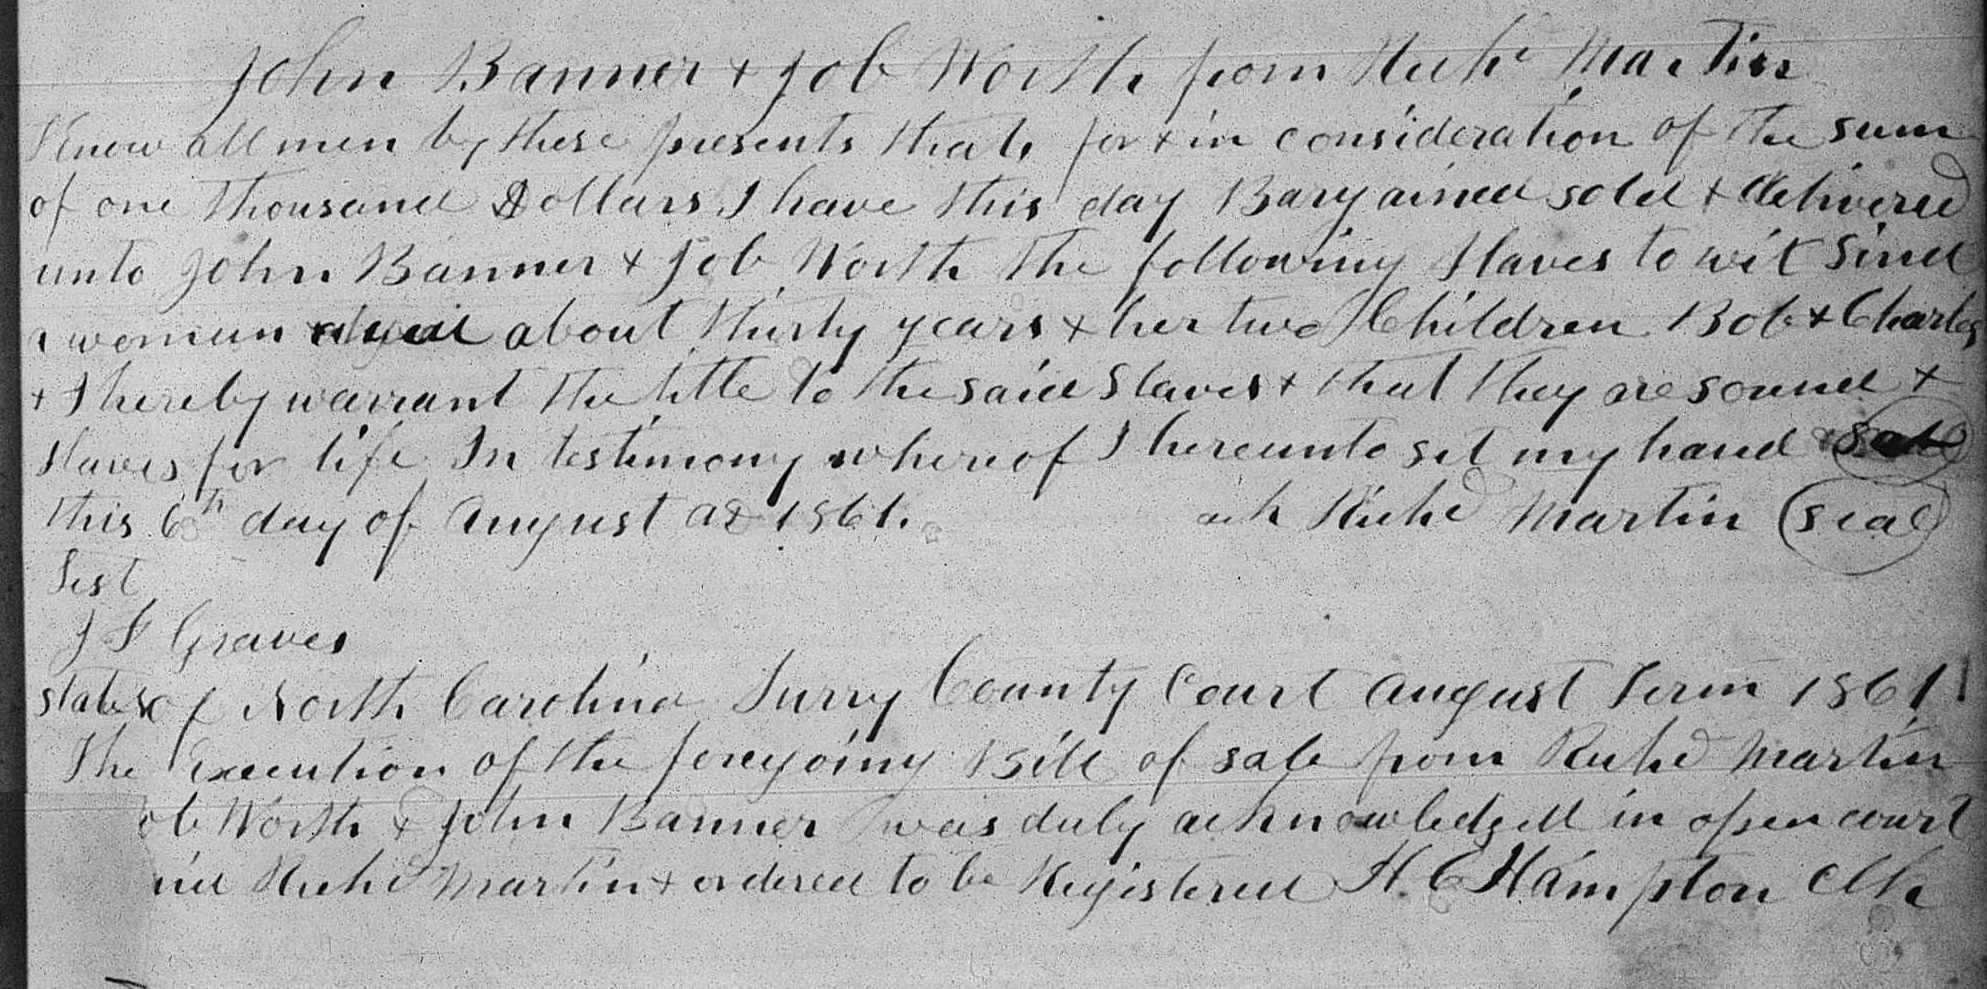 John Banner + Job Worth from Richd Martin
Know all men by these presents that for + in consideration of the sum
of one thousand Dollars I have this day Bargained sold + delivered
unto John Banner + Job Worth the following slaves to wit Sind
a woman aged about thirty years + her two Children Bob + Charles
+ I hereby warrant the title to the said Slaves + that they are sound +
slaves for life In testimony whereof I hereunto set my hand + seal
this 6th day of August AD 1861. Richd Martin (seal)
Test
J F Graves
State of North Carolina Surry County Court August Term 1861
The Execution of the foregoing Bill of sale from Richd Martin
ob Worth & John Banner was duly acknowledged in open court
Richd Martin + ordered to be Registered H. C Hampton Clk